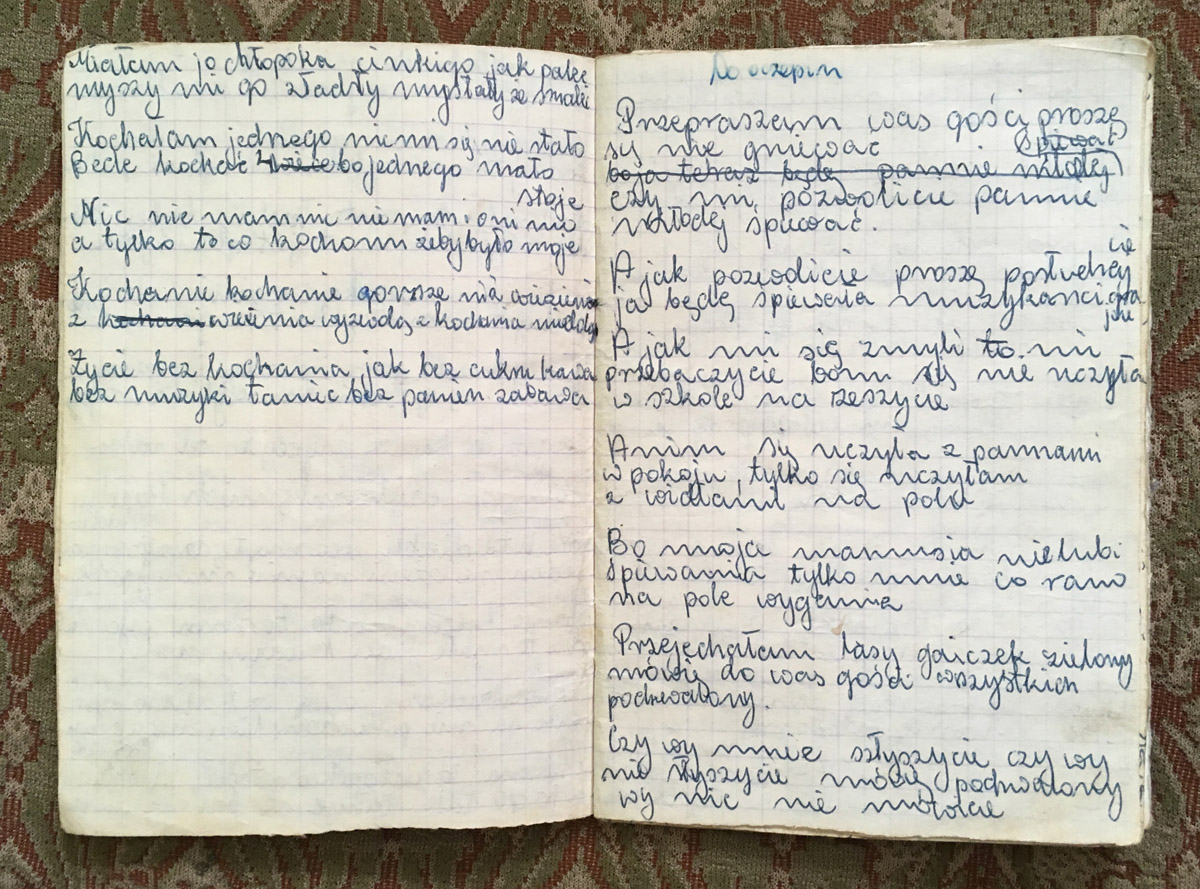 Miałam jo chłopoka cinkigo jak palec
myszy mi go zladły myslały że smalec
Kochałam jednego nic mi się nie stało
Bede kochać bo jednego mało
stoje
Nic nie mam nic nie mam i oni nic
a tylko to co kocham żeby było moje
Kochanie kochanie gorsze nia wiezienie
z wiezienia wyzwodzą z kochania
Życie bez kochania jak bez cukru kawa
bez muzyki taniec bez panien zabawa
Do oczepin
Przepraszam was gości proszę
sy nie gniewać śpiewać
boja teraz będę pannie młodej
czy mi pozwolicie pannie
młodej śpiewać.
cie
A jak pozwolicie proszę posłuchej
ja będę śpiewała muzykanci gra
jcie
A jak mi się zmyli to mi
przebaczycie bom sy nie uczyła
w szkole na zeszycie
Anim się uczyła z pannami
w pokoju, tylko się uczyłam
z widłami na polu
Bo moja mamusia nie lubi
śpiewania tylko mnie co rano
na pole wygania
Przejechałam lasy gaiczek zielony
mówię do was gości wszystkich
podchwolony.
Czy wy mnie szłyszycie czy wy
nie słyszycie mówię podchwolony
wy nic nie mówicie